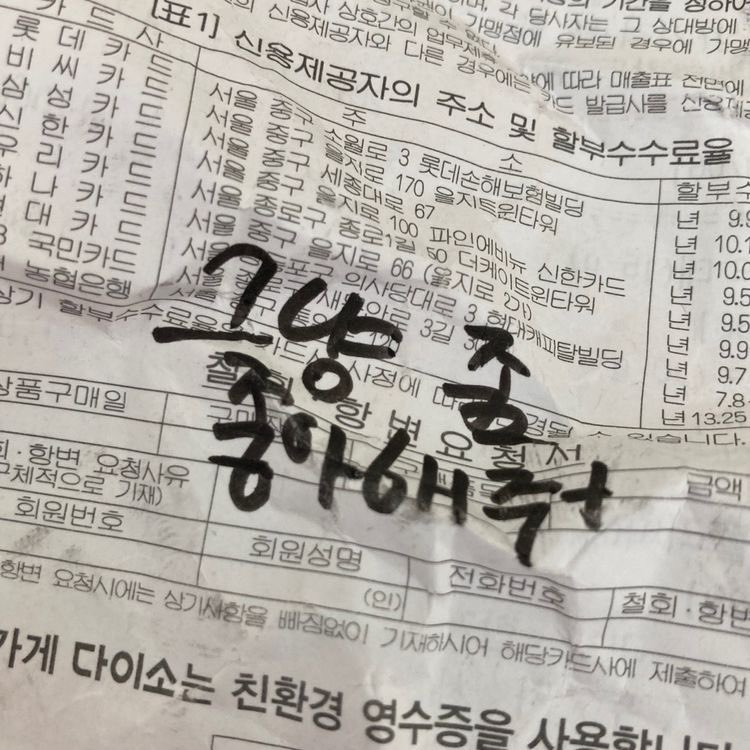 [표1] 신용제공자의 주소 및 할부수수료율
신용제공자와 다른 경우에는
카드사
주 소
할부수
롯데카드
서울 중구 소월로 3 롯데손해보험빌딩
년 9.9
비씨카드
서울 중구 을지로 170 을지트윈타워
년 10.
삼성카드
서울 중구 세종대로 67
년 10.0
신한카드
서울 중구 을지로 100 파인에비뉴 신한카드
년 9.5
우리카드
서울 종로구 종로1길 50 더케이트윈타워
년 9.5
하나카드
서울 중구 을지로 66 (을지로 2가)
년 9.9
현대카드
의사당대로 3 현대캐피탈빌딩
년 9.7
국민카드
3길 30
년 7.8
농협은행
년 13.25
그냥 좀
좋아해줘
상품구매일
금액
철회·항변요청서
회·항변 요청사유
구체적으로 기재)
회원번호
회원성명
(인)
전화번호
철회·항변
항변 요청시에는 상기사항을 빠짐없이 기재하시어 해당카드사에 제출하여
가게 다이소는 친환경 영수증을 사용합니다